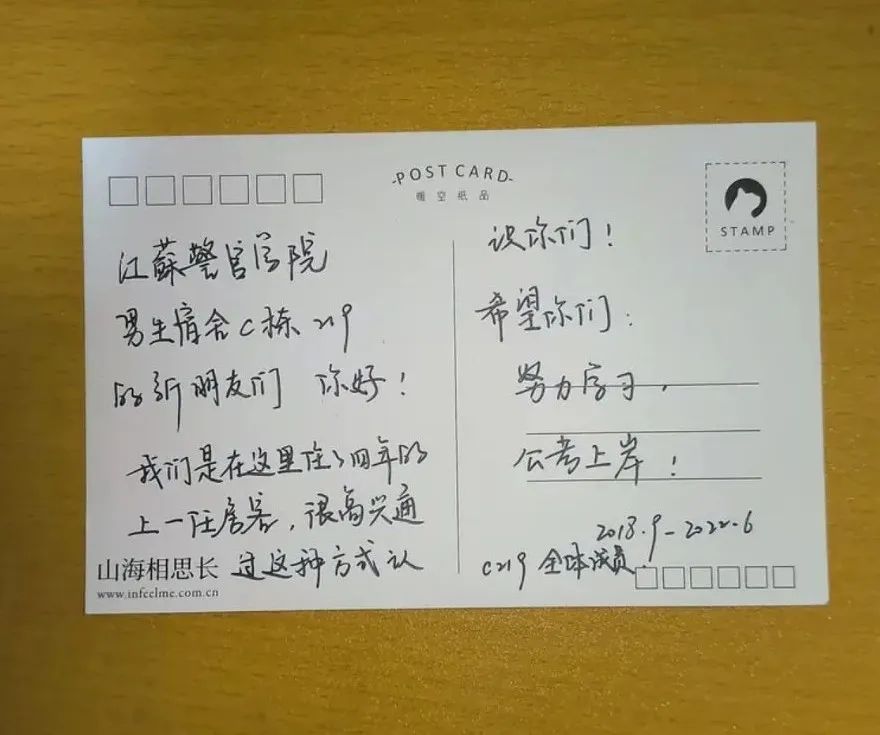 POST CARD
暖空纸品
STAMP
江蘇警官学院
男生宿舍C栋219
的新朋友们 你好！
我们是在这里住了四年的
上一任房客，很高兴通
过这种方式认
山海相思长
www.infeelme.com.cn
识你们！
希望你们：
努力学习，
公考上岸！
2018.9-2022.6
C219 全体成员